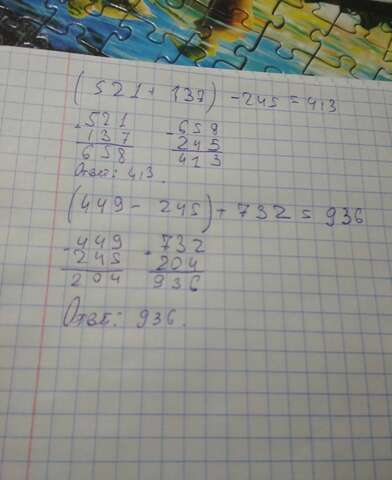 (521 + 137) - 245 = 413
521 - 658
137 245
658 413
Ответ: 413.
(449 - 245) + 732 = 936
- 449 + 732
245 204
204 936
Ответ: 936.